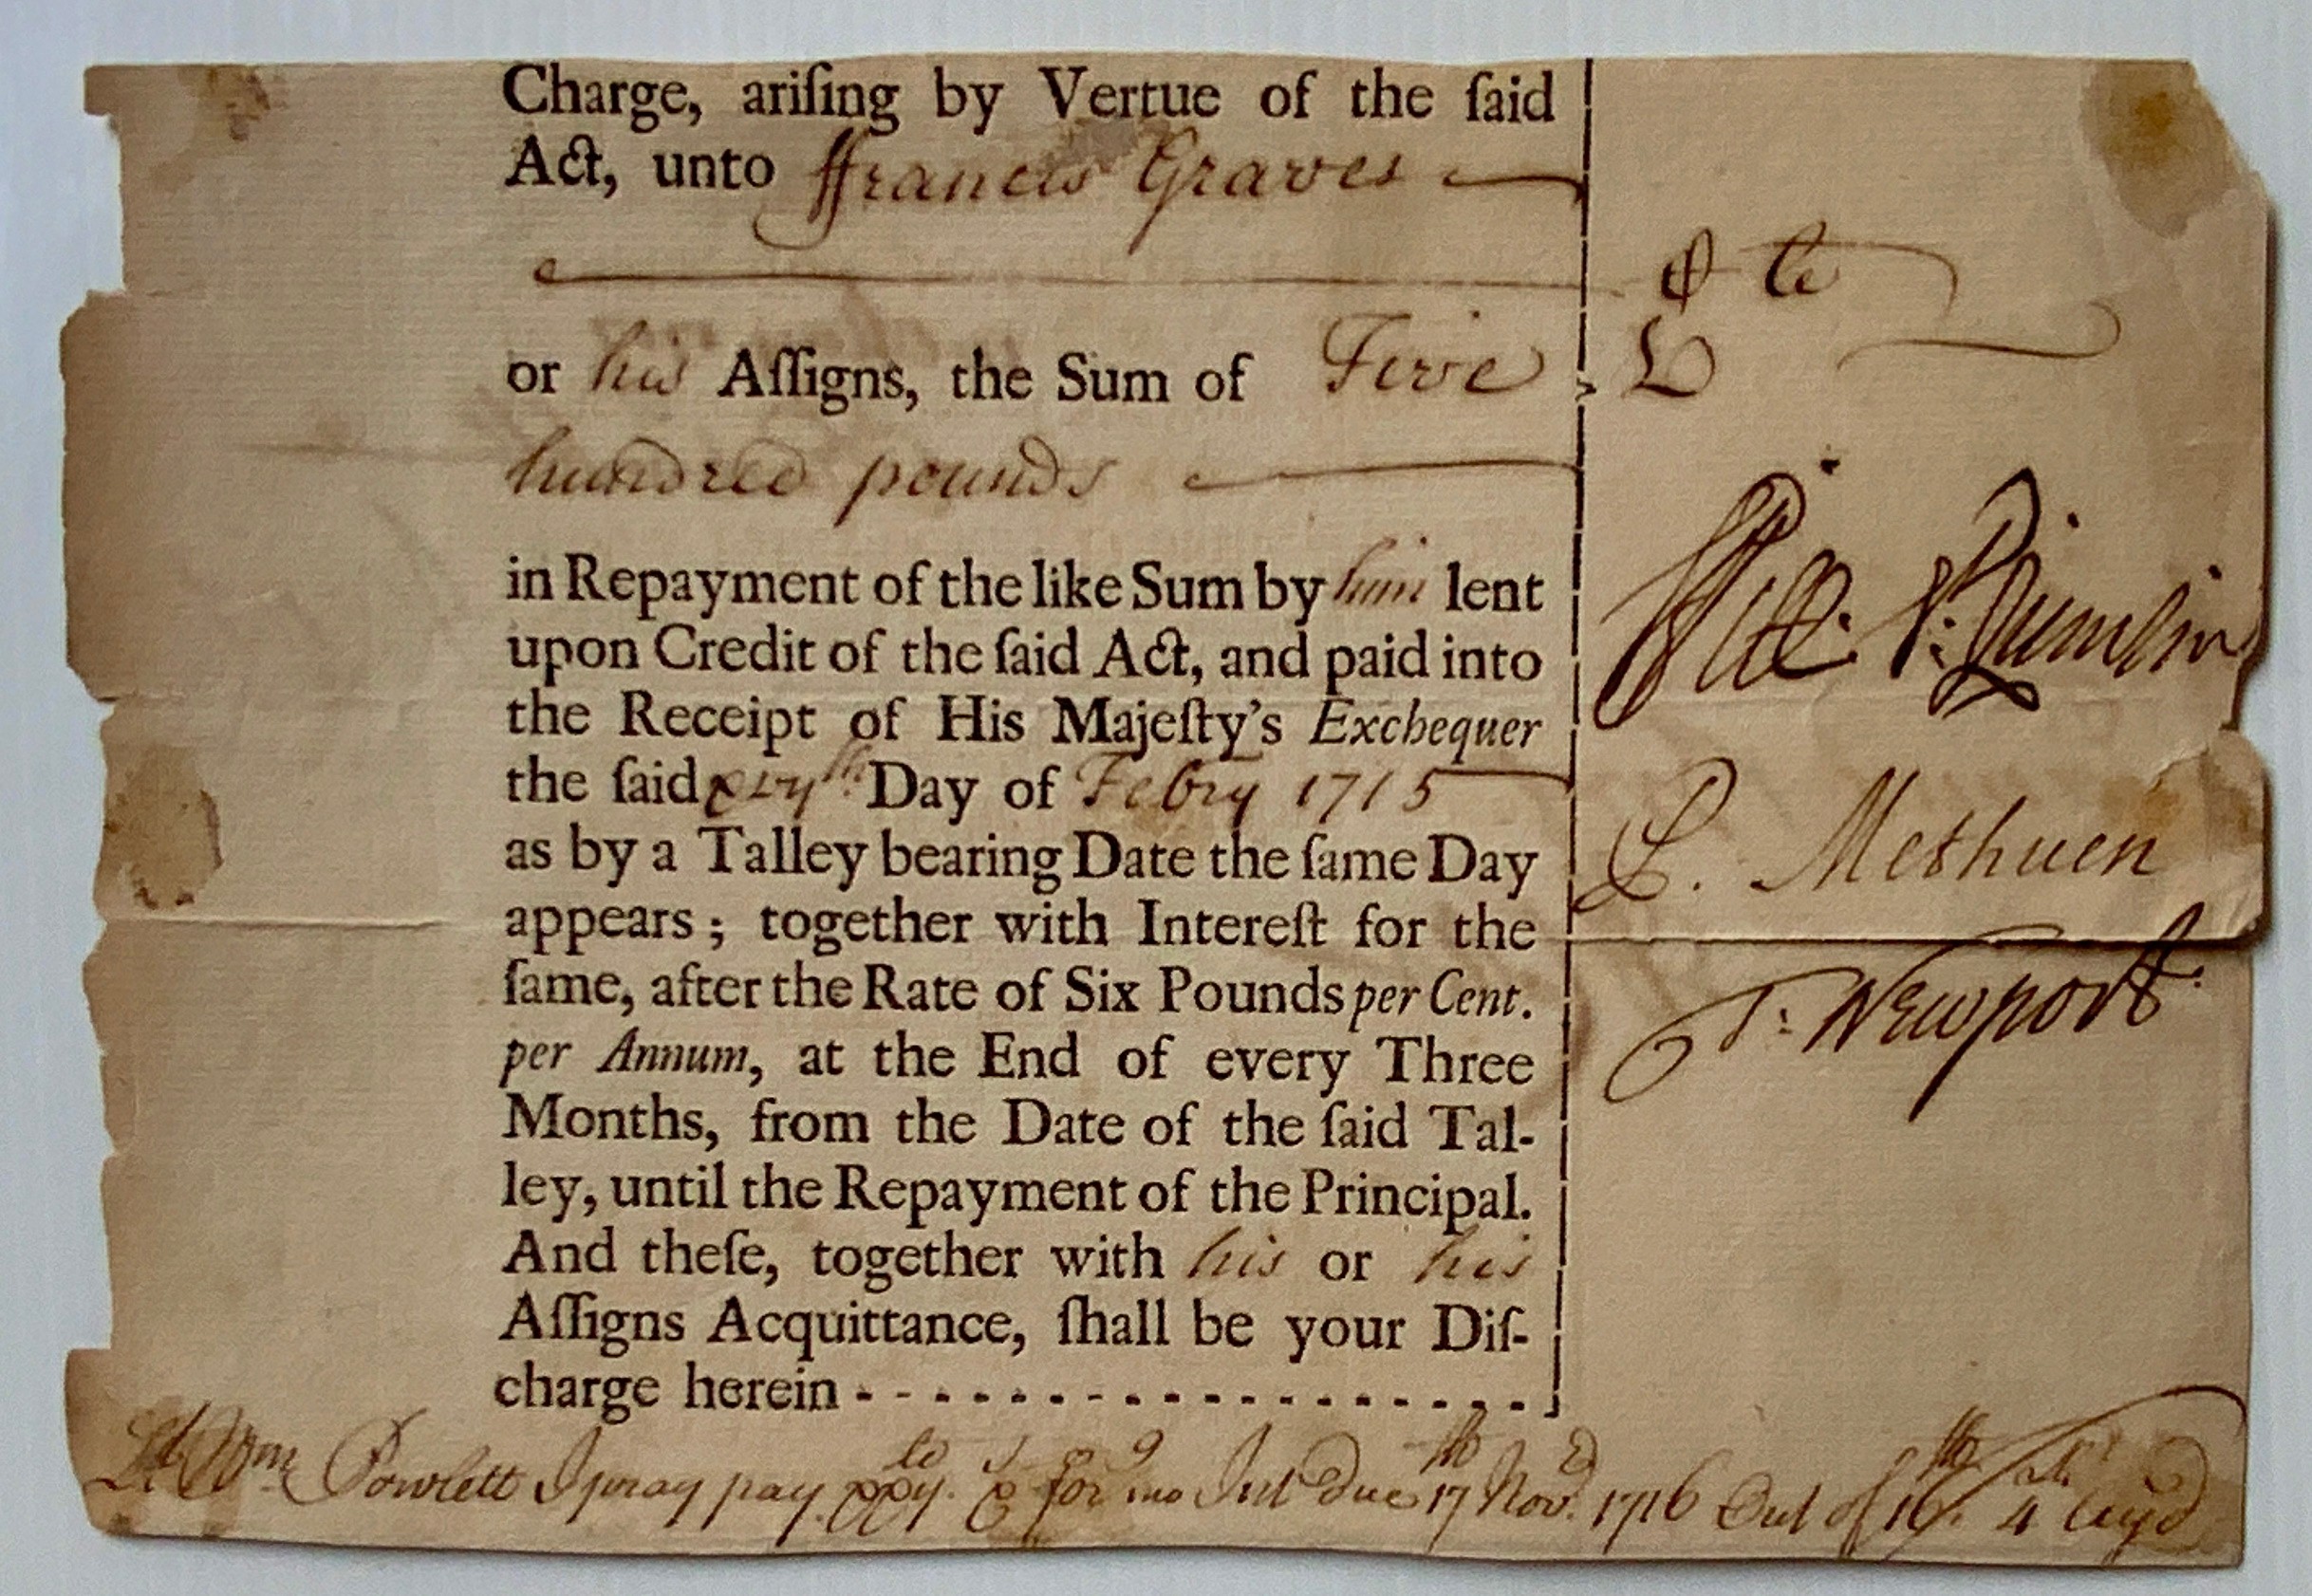 Charge, ariſing by Vertue of the ſaid
Act, unto ffrancis Graves
or his Aſſigns, the Sum of Five
hundred pounds
in Repayment of the like Sum by him lent
upon Credit of the ſaid Act, and paid into
the Receipt of His Majeſty's Exchequer
the ſaid Day of Febry 1715
as by a Talley bearing Date the ſame Day
appears; together with Intereſt for the
ſame, after the Rate of Six Pounds per Cent.
per Annum, at the End of every Three
Months, from the Date of the ſaid Tal-
ley, until the Repayment of the Principal.
And theſe, together with his or his
Aſſigns Acquittance, ſhall be your Diſ-
charge herein - - - - - - - - - - - - - - - - - -
Methuen
T: Newport
Ld Wm Powlett I pray pay for Int due 17th Nov. 1716 Out of